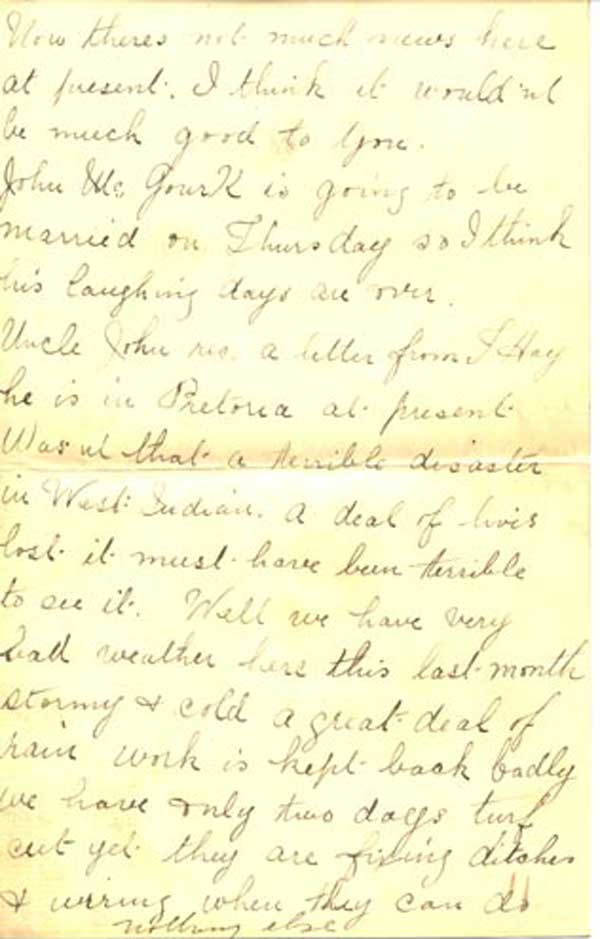 Now theres not much news here
at present. I think it would'nt
be much good to you.
John Mc GourK is going to be
married on Thursday so I think
his laughing days are over.
Uncle John rec. a letter from J Hay
he is in Pretoria at present
Was nt that a terrible disaster
in West Indian. a deal of lives
lost it must have been terrible
to see it. Well we have very
bad weather here this last month
stormy & cold a great deal of
rain work is kept back badly
we have only two days turf
cut yet they are fixing ditches
& wiring when they can do
nothing else